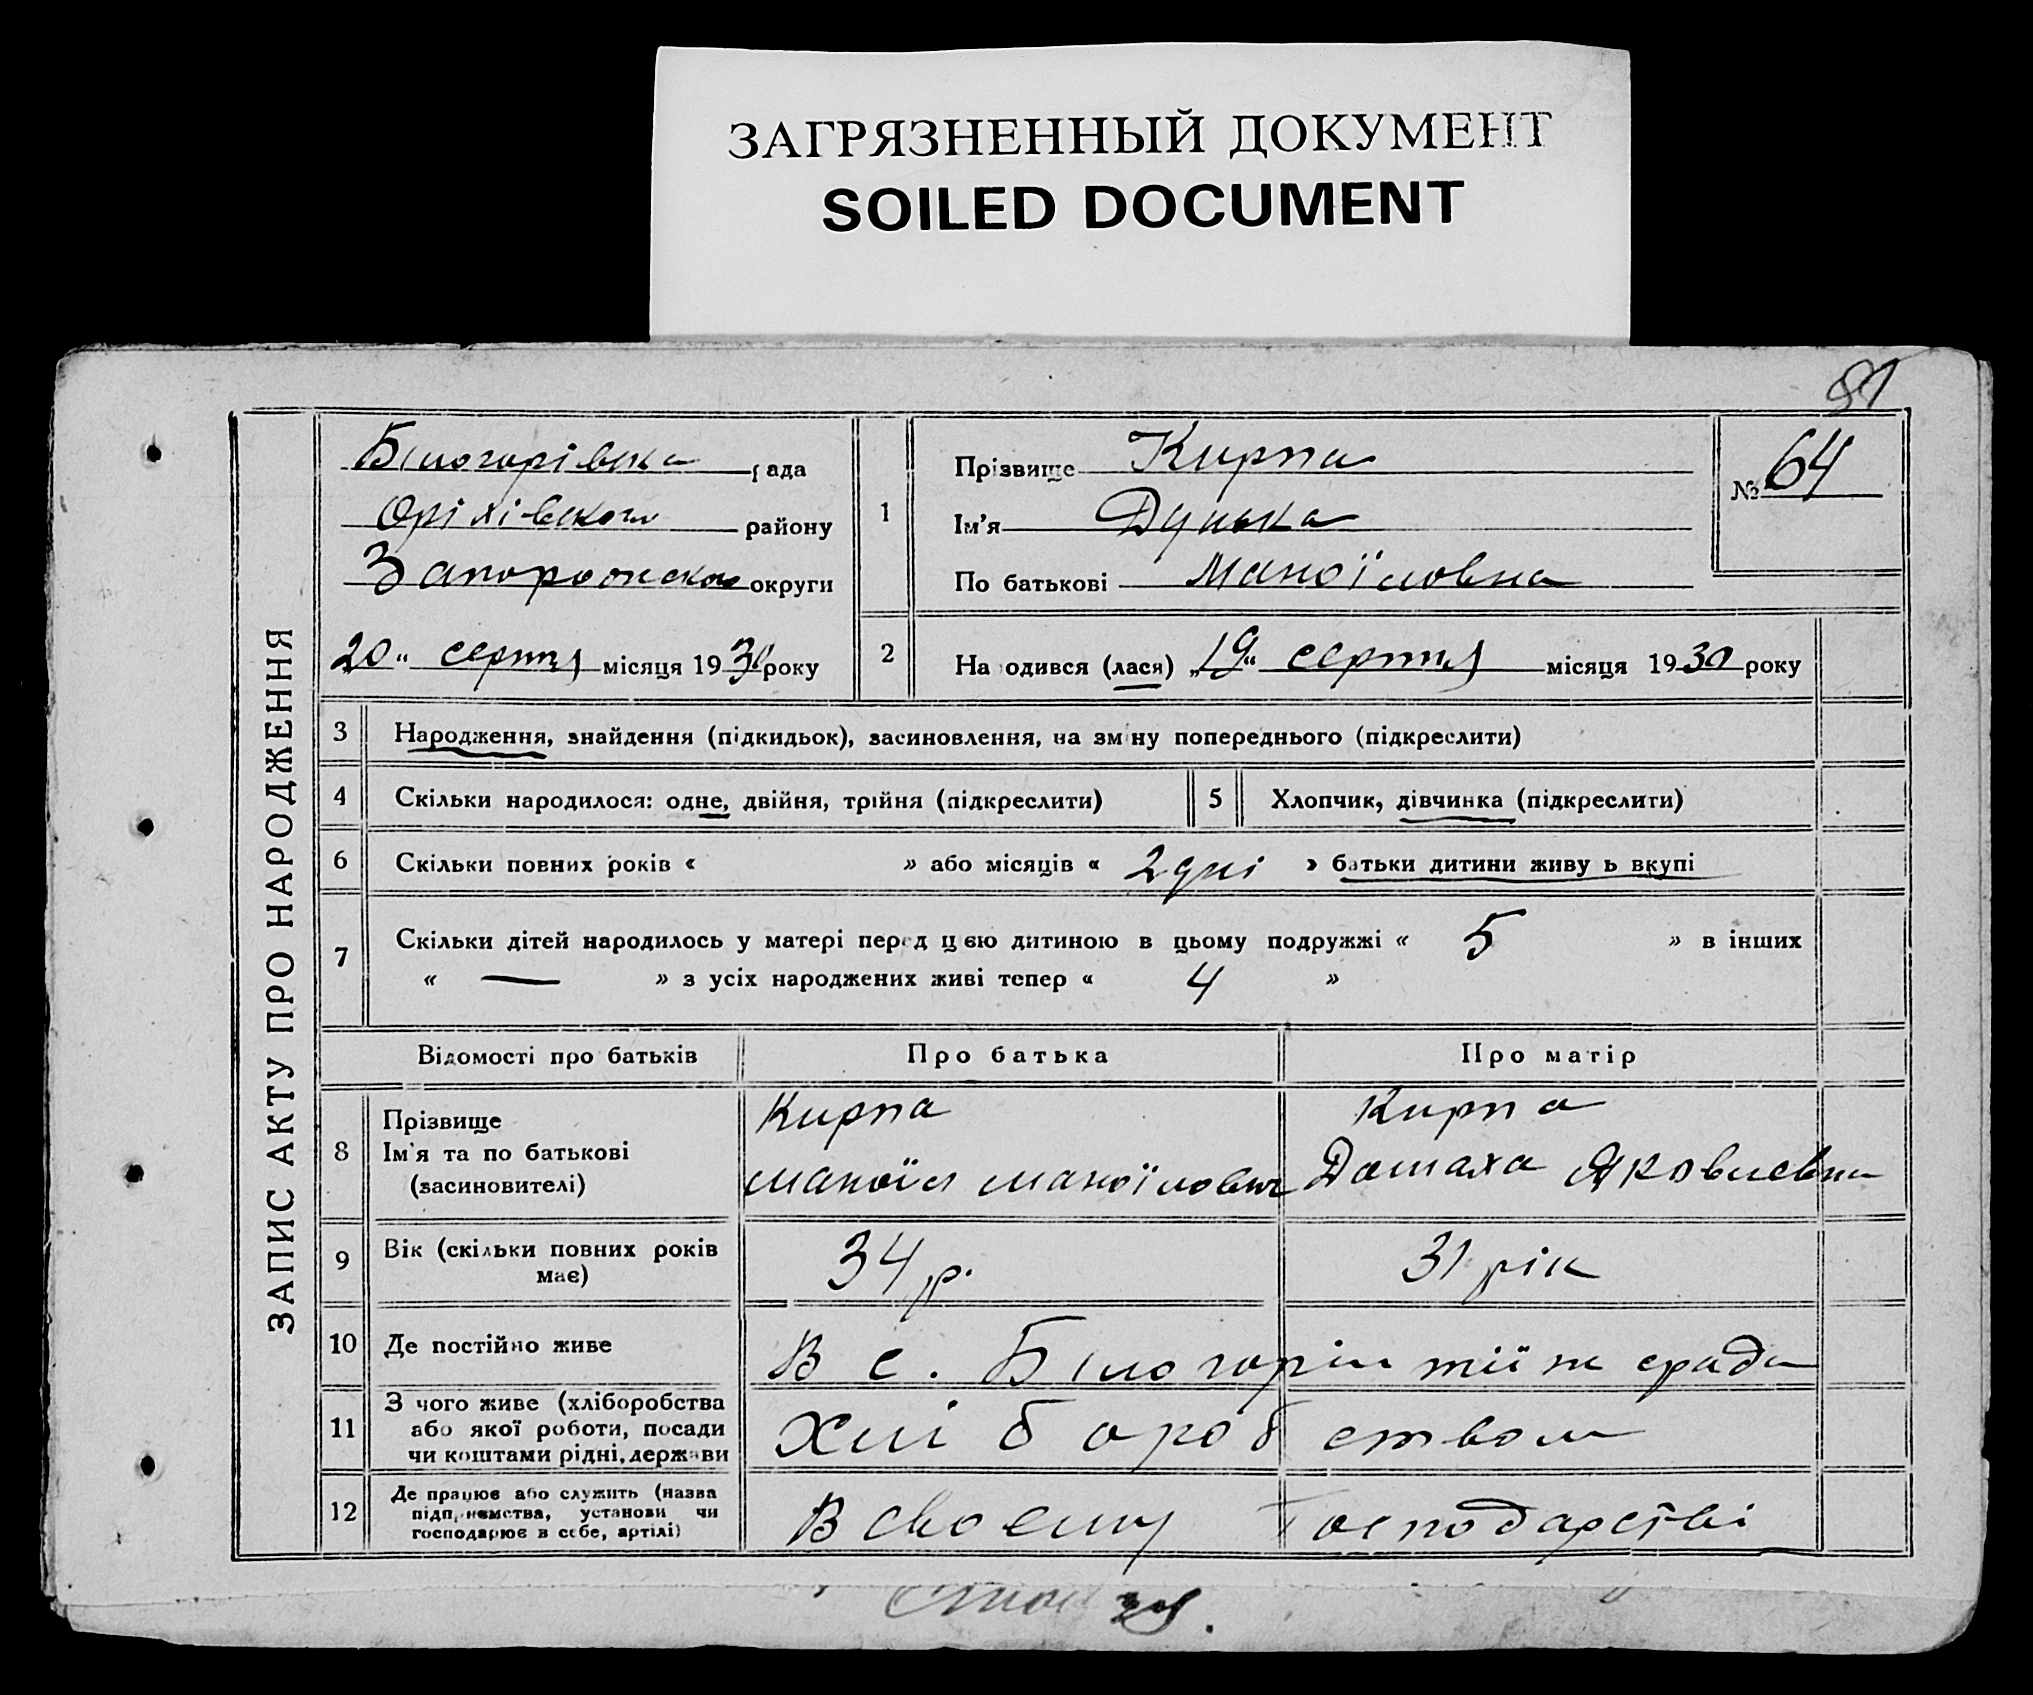 ЗАГРЯЗНЕННЫЙ ДОКУМЕНТ
SOILED DOCUMENT
81
ЗАПИС АКТУ ПРО НАРОДЖЕННЯ
Білогорівська рада
Оріхівського району
Запорожского округи
20 „ серпня місяця 1930 року
1
Прізвище Кирпа
Ім'я Дунька
По батькові Маноїловна
№ 64
2
На одився (лася) „19“ серпня місяця 1930 року
3 Народження, знайдення (підкидьок), засиновлення, на зміну попереднього (підкреслити)
4 Скільки народилося: одне, двійня, трійня (підкреслити)
5 Хлопчик, дівчинка (підкреслити)
6 Скільки повних років « » або місяців « 2 дні » батьки дитини живу ь вкупі
7 Скільки дітей народилось у матері перед цею дитиною в цьому подружжі « 5 » в інших
« — » з усіх народжених живі тепер « 4 »
Відомості про батьків Про батька Про матір
8 Прізвище
Ім'я та по батькові
(засиновителі)
Кирпа
Маноїл Маноїлович
Кирпа
Домаха Яковлевна
9 Вік (скільки повних років
має)
34 р.
31 рік
10 Де постійно живе
В с. Білогорівка тії ж сради
11 З чого живе (хліборобства
або якої роботи, посади
чи коштами рідні, держави
Хліборобством
12 Де працює або служить (назва
підприємства, установи чи
господарює в себе, артілі)
В своєму Господарстві